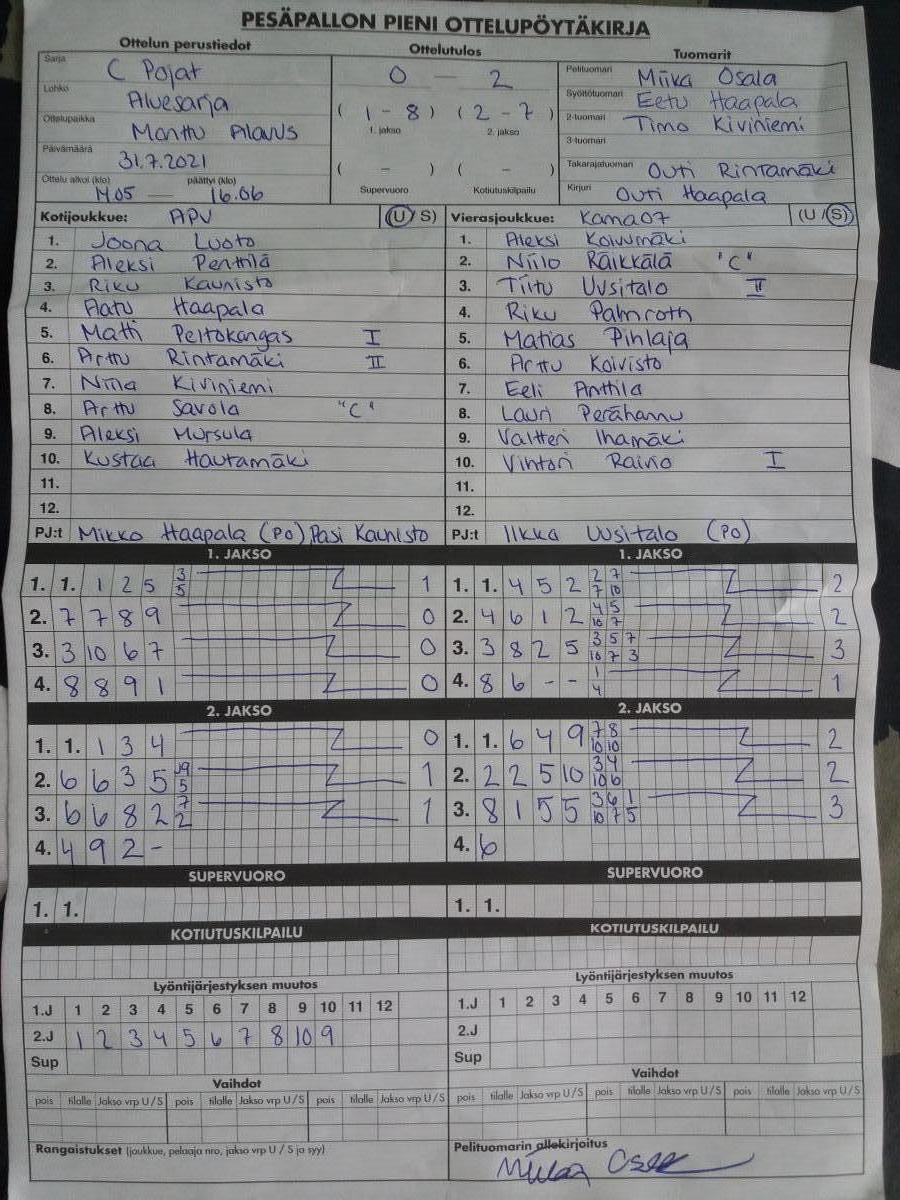 PESÄPALLON PIENI OTTELUPÖYTÄKIRJA
Ottelun perustiedot
Sarja C Pojat
Lohko Aluesarja
Ottelupaikka Monttu Alavus
Päivämäärä 31.7.2021
Ottelu alkoi (klo) 1405 — päättyi (klo) 16.06
Ottelutulos
0 — 2
(1-8) (2-7)
1. jakso 2. jakso
( - ) ( - )
Supervuoro Kotiutuskilpailu
Tuomarit
Pelituomari Miika Osala
Syöttötuomari Eetu Haapala
2-tuomari Timo Kiviniemi
3-tuomari
Takarajatuomari Outi Rintamäki
Kirjuri Outi Haapala
Kotijoukkue: APV (U/S)
1. Joona Luoto
2. Aleksi Penttilä
3. Riku Kaunisto
4. Aatu Haapala
5. Matti Peltokangas I
6. Arttu Rintamäki II
7. Niila Kiviniemi
8. Arttu Savola "C"
9. Aleksi Mursula
10. Kustaa Hautamäki
11.
12.
PJ:t Mikko Haapala (PO), Pasi Kaunisto
Vierasjoukkue: Kama07 (U/S)
1. Aleksi Koivumäki
2. Niilo Räikkälä "C"
3. Tiitu Uusitalo II
4. Riku Palmroth
5. Matias Pihlaja
6. Arttu Koivisto
7. Eeli Anttila
8. Lauri Perähannu
9. Valtteri Ihamäki
10. Vihtori Rainio I
11.
12.
PJ:t Ilkka Uusitalo (PO)
1. JAKSO
1. 1. 1 2 5 3 5 1
2. 7 7 8 9 0
3. 3 10 6 7 0
4. 8 8 9 1 0
2. JAKSO
1. 1. 1 3 4 0
2. 6 6 3 5 5 1
3. 6 6 8 2 7 2 1
4. 4 9 2 -
SUPERVUORO
1. 1.
KOTIUTUSKILPAILU
1. JAKSO
1. 1. 4 5 2 2 7 7 10 2
2. 4 6 1 2 4 5 10 7 2
3. 3 8 2 5 3 5 7 10 7 3 3
4. 8 6 - - 1 4 1
2. JAKSO
1. 1. 6 4 9 7 8 10 10 2
2. 2 2 5 10 3 4 10 6 2
3. 8 1 5 5 3 6 1 10 7 5 3
4. 6
SUPERVUORO
1. 1.
KOTIUTUSKILPAILU
Lyöntijärjestyksen muutos
1.J 1 2 3 4 5 6 7 8 9 10 11 12
2.J 1 2 3 4 5 6 7 8 10 9
Sup
Vaihdot
pois tilalle Jakso vrp U/S pois tilalle Jakso vrp U/S pois tilalle Jakso vrp U/S
Rangaistukset (joukkue, pelaaja nro, jakso vrp U / S ja syy)
Lyöntijärjestyksen muutos
1.J 1 2 3 4 5 6 7 8 9 10 11 12
2.J
Sup
Vaihdot
pois tilalle Jakso vrp U/S pois tilalle Jakso vrp U/S pois tilalle Jakso vrp U/S
Pelituomarin allekirjoitus